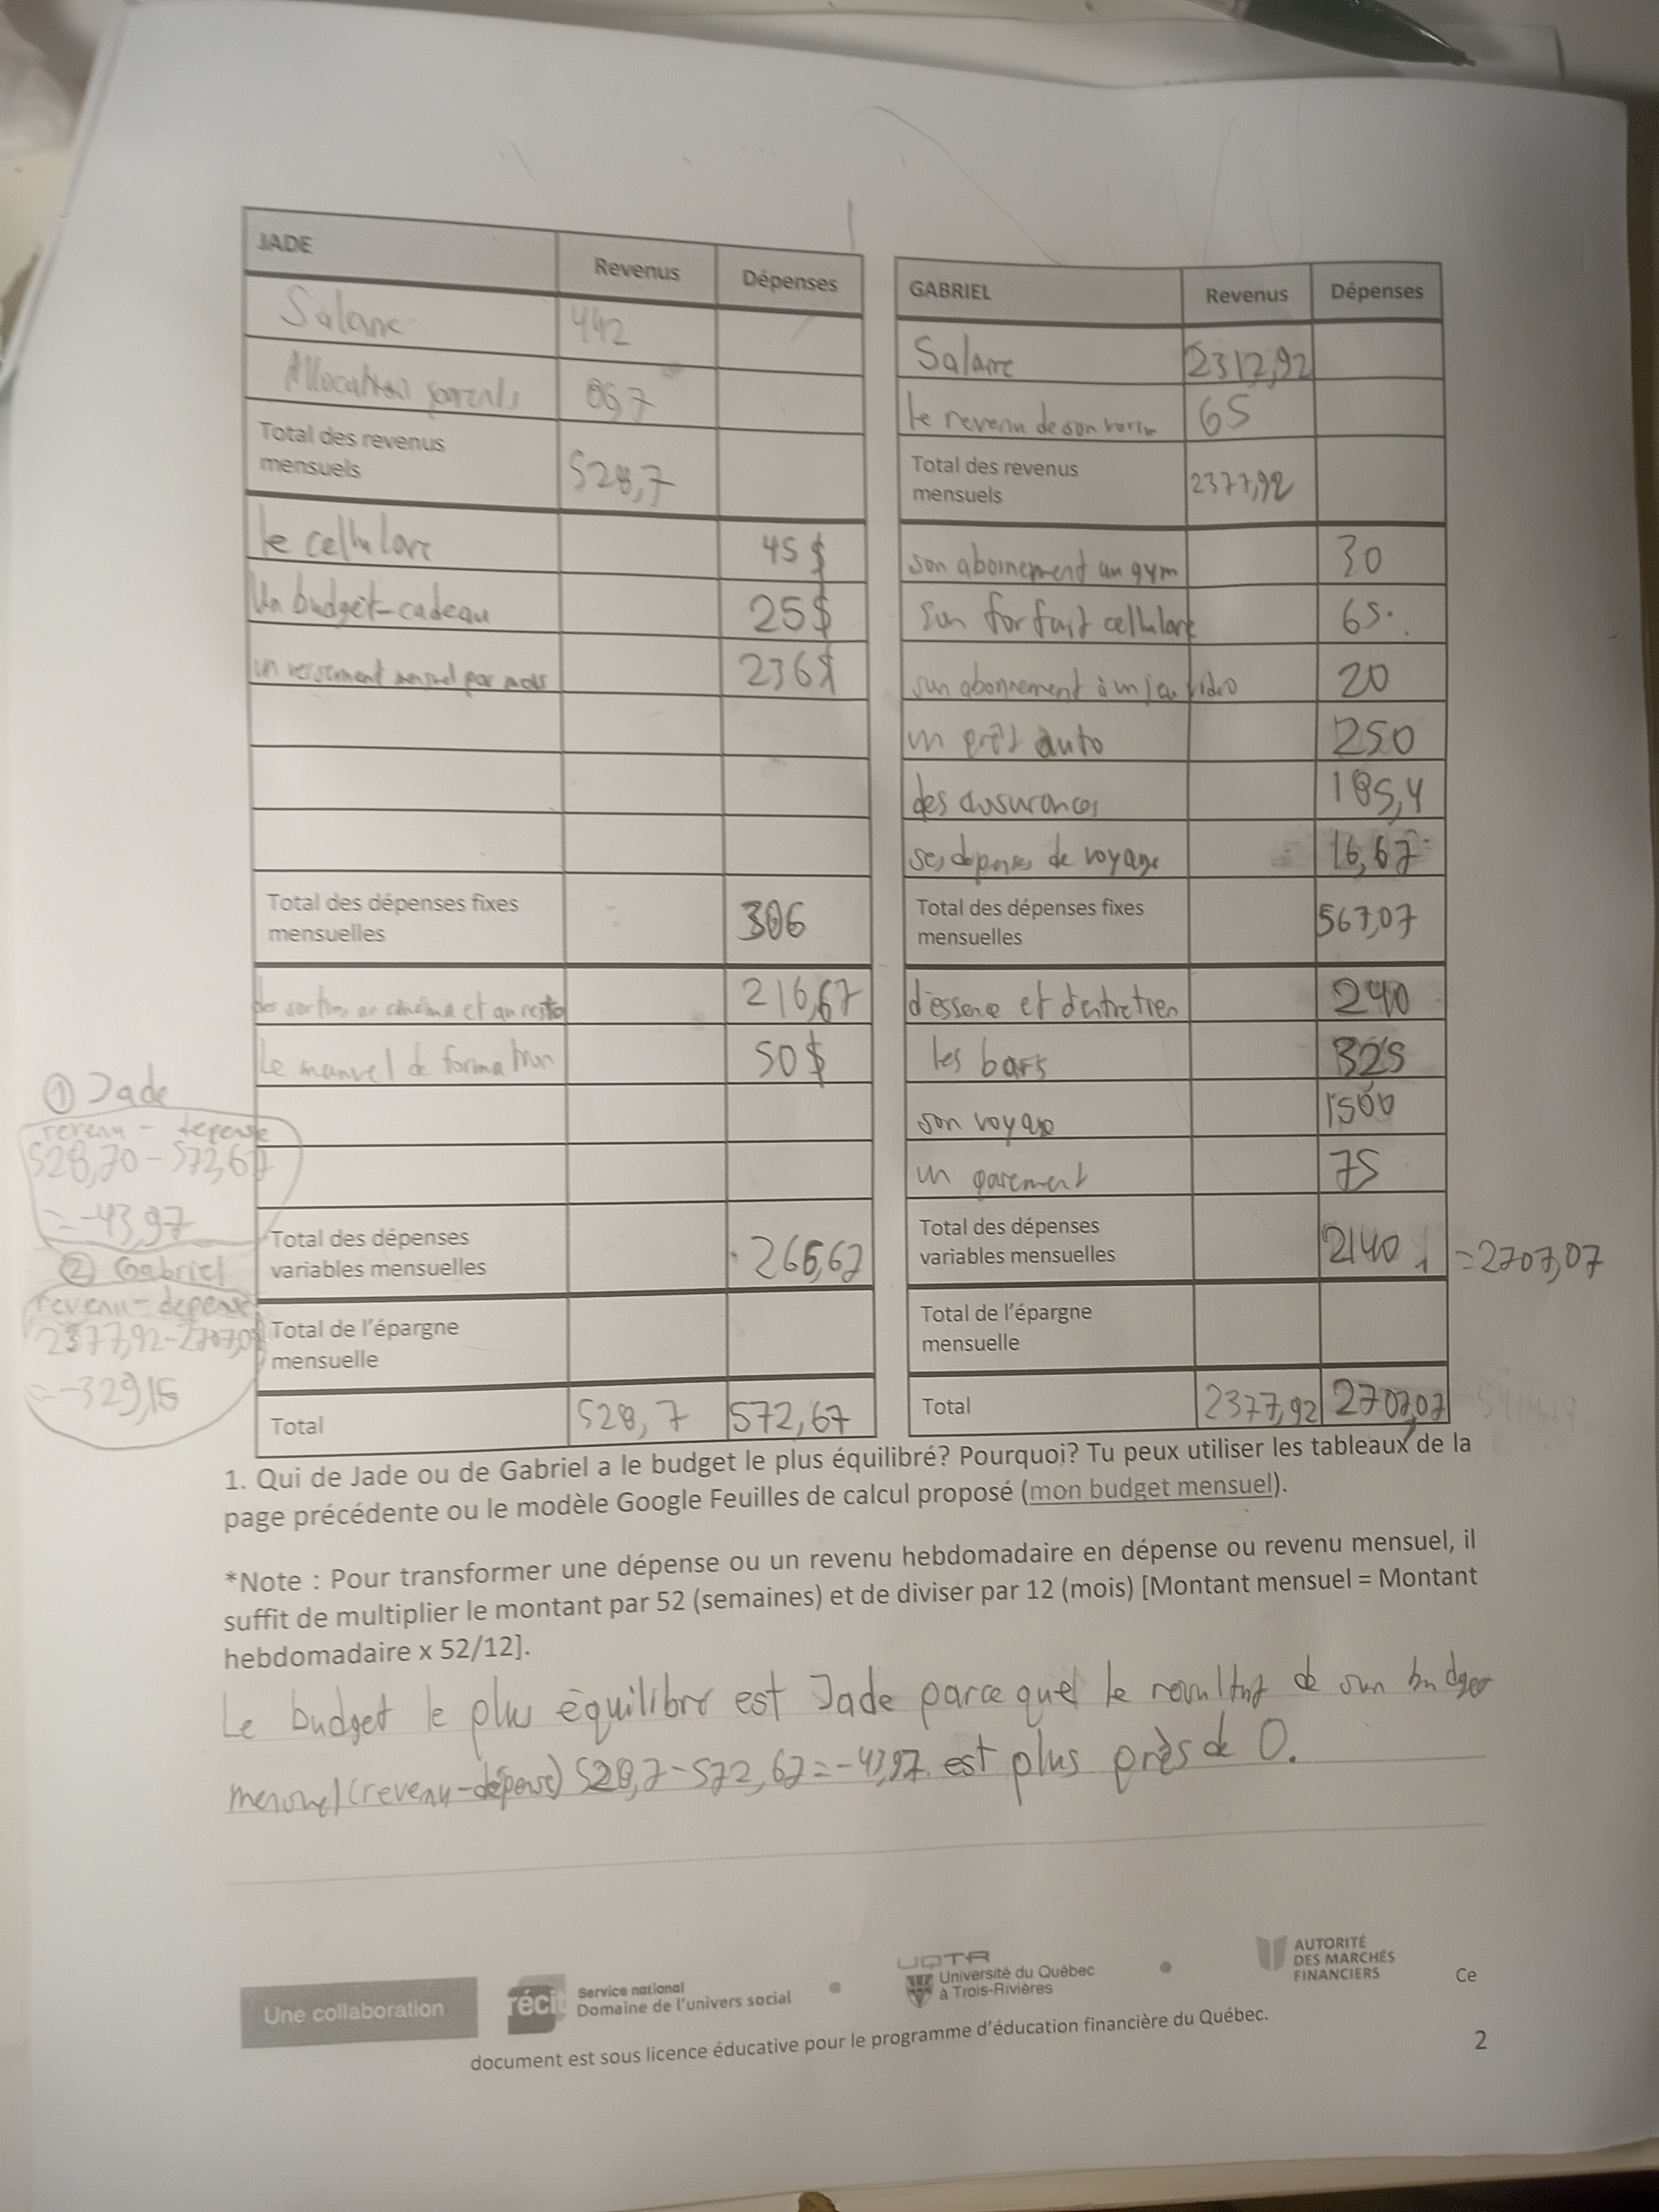 JADE Revenus Dépenses
Salaire 442
Allocation parents 86,7
Total des revenus
mensuels 528,7
le cellulaire 45 $
Un budget-cadeau 25 $
un versement mensuel par mois 236 $
Total des dépenses fixes
mensuelles 306
des sorties au cinéma et au resto 216,67
Le manuel de formation 50 $
Total des dépenses
variables mensuelles 266,67
Total de l'épargne
mensuelle
Total 528,7 572,67
GABRIEL Revenus Dépenses
Salaire 2312,92
le revenu de son 65
Total des revenus
mensuels 2377,92
son abonnement au gym 30
son forfait cellulaire 65
son abonnement à un jeu vidéo 20
un prêt auto 250
des assurances 185,4
ses dépenses de voyage 16,67
Total des dépenses fixes
mensuelles 567,07
d'essence et d'entretien 240
les bars 325
son voyage 1500
un 75
Total des dépenses
variables mensuelles 2140 = 2707,07
Total de l'épargne
mensuelle
Total 2377,92 2707,07
① Jade
revenu - depense
528,70 - 572,67
= -43,97
② Gabriel
revenu - depense
2377,92 - 2707,07
= -329,15
1. Qui de Jade ou de Gabriel a le budget le plus équilibré? Pourquoi? Tu peux utiliser les tableaux de la
page précédente ou le modèle Google Feuilles de calcul proposé (mon budget mensuel).
*Note : Pour transformer une dépense ou un revenu hebdomadaire en dépense ou revenu mensuel, il
suffit de multiplier le montant par 52 (semaines) et de diviser par 12 (mois) [Montant mensuel = Montant
hebdomadaire x 52/12].
Le budget le plus équilibré est Jade parce que le resultat de son budget
mensuel (revenu-dépense) 528,7 - 572,67 = -43,97. est plus près de 0.
Une collaboration
récit Service national
Domaine de l'univers social
UQTR
Université du Québec
à Trois-Rivières
AUTORITÉ
DES MARCHÉS
FINANCIERS
Ce
document est sous licence éducative pour le programme d'éducation financière du Québec.
2